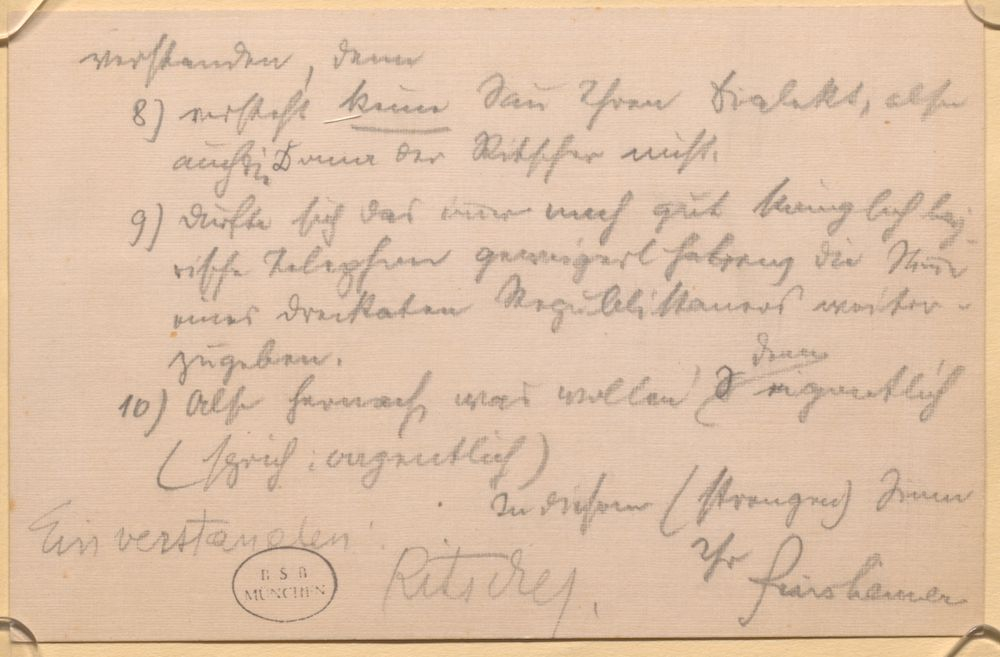 verstanden, denn
8) versteht keine Sau Ihren Dialekt, also
auch die Dame der Ritscher nicht.
9) dürfte sich das immer noch gut königlich bay-
rische Telephon geweigert haben, die Stimme
eines Republikaners weiter-
zugeben.
10) Also hernach, was wollen S' denn eigentlich
(sprich: oagentlich)
In diesem (strengen) Sinn
Ihr
Einverstanden!
Ritscher.
B S B
MÜNCHEN